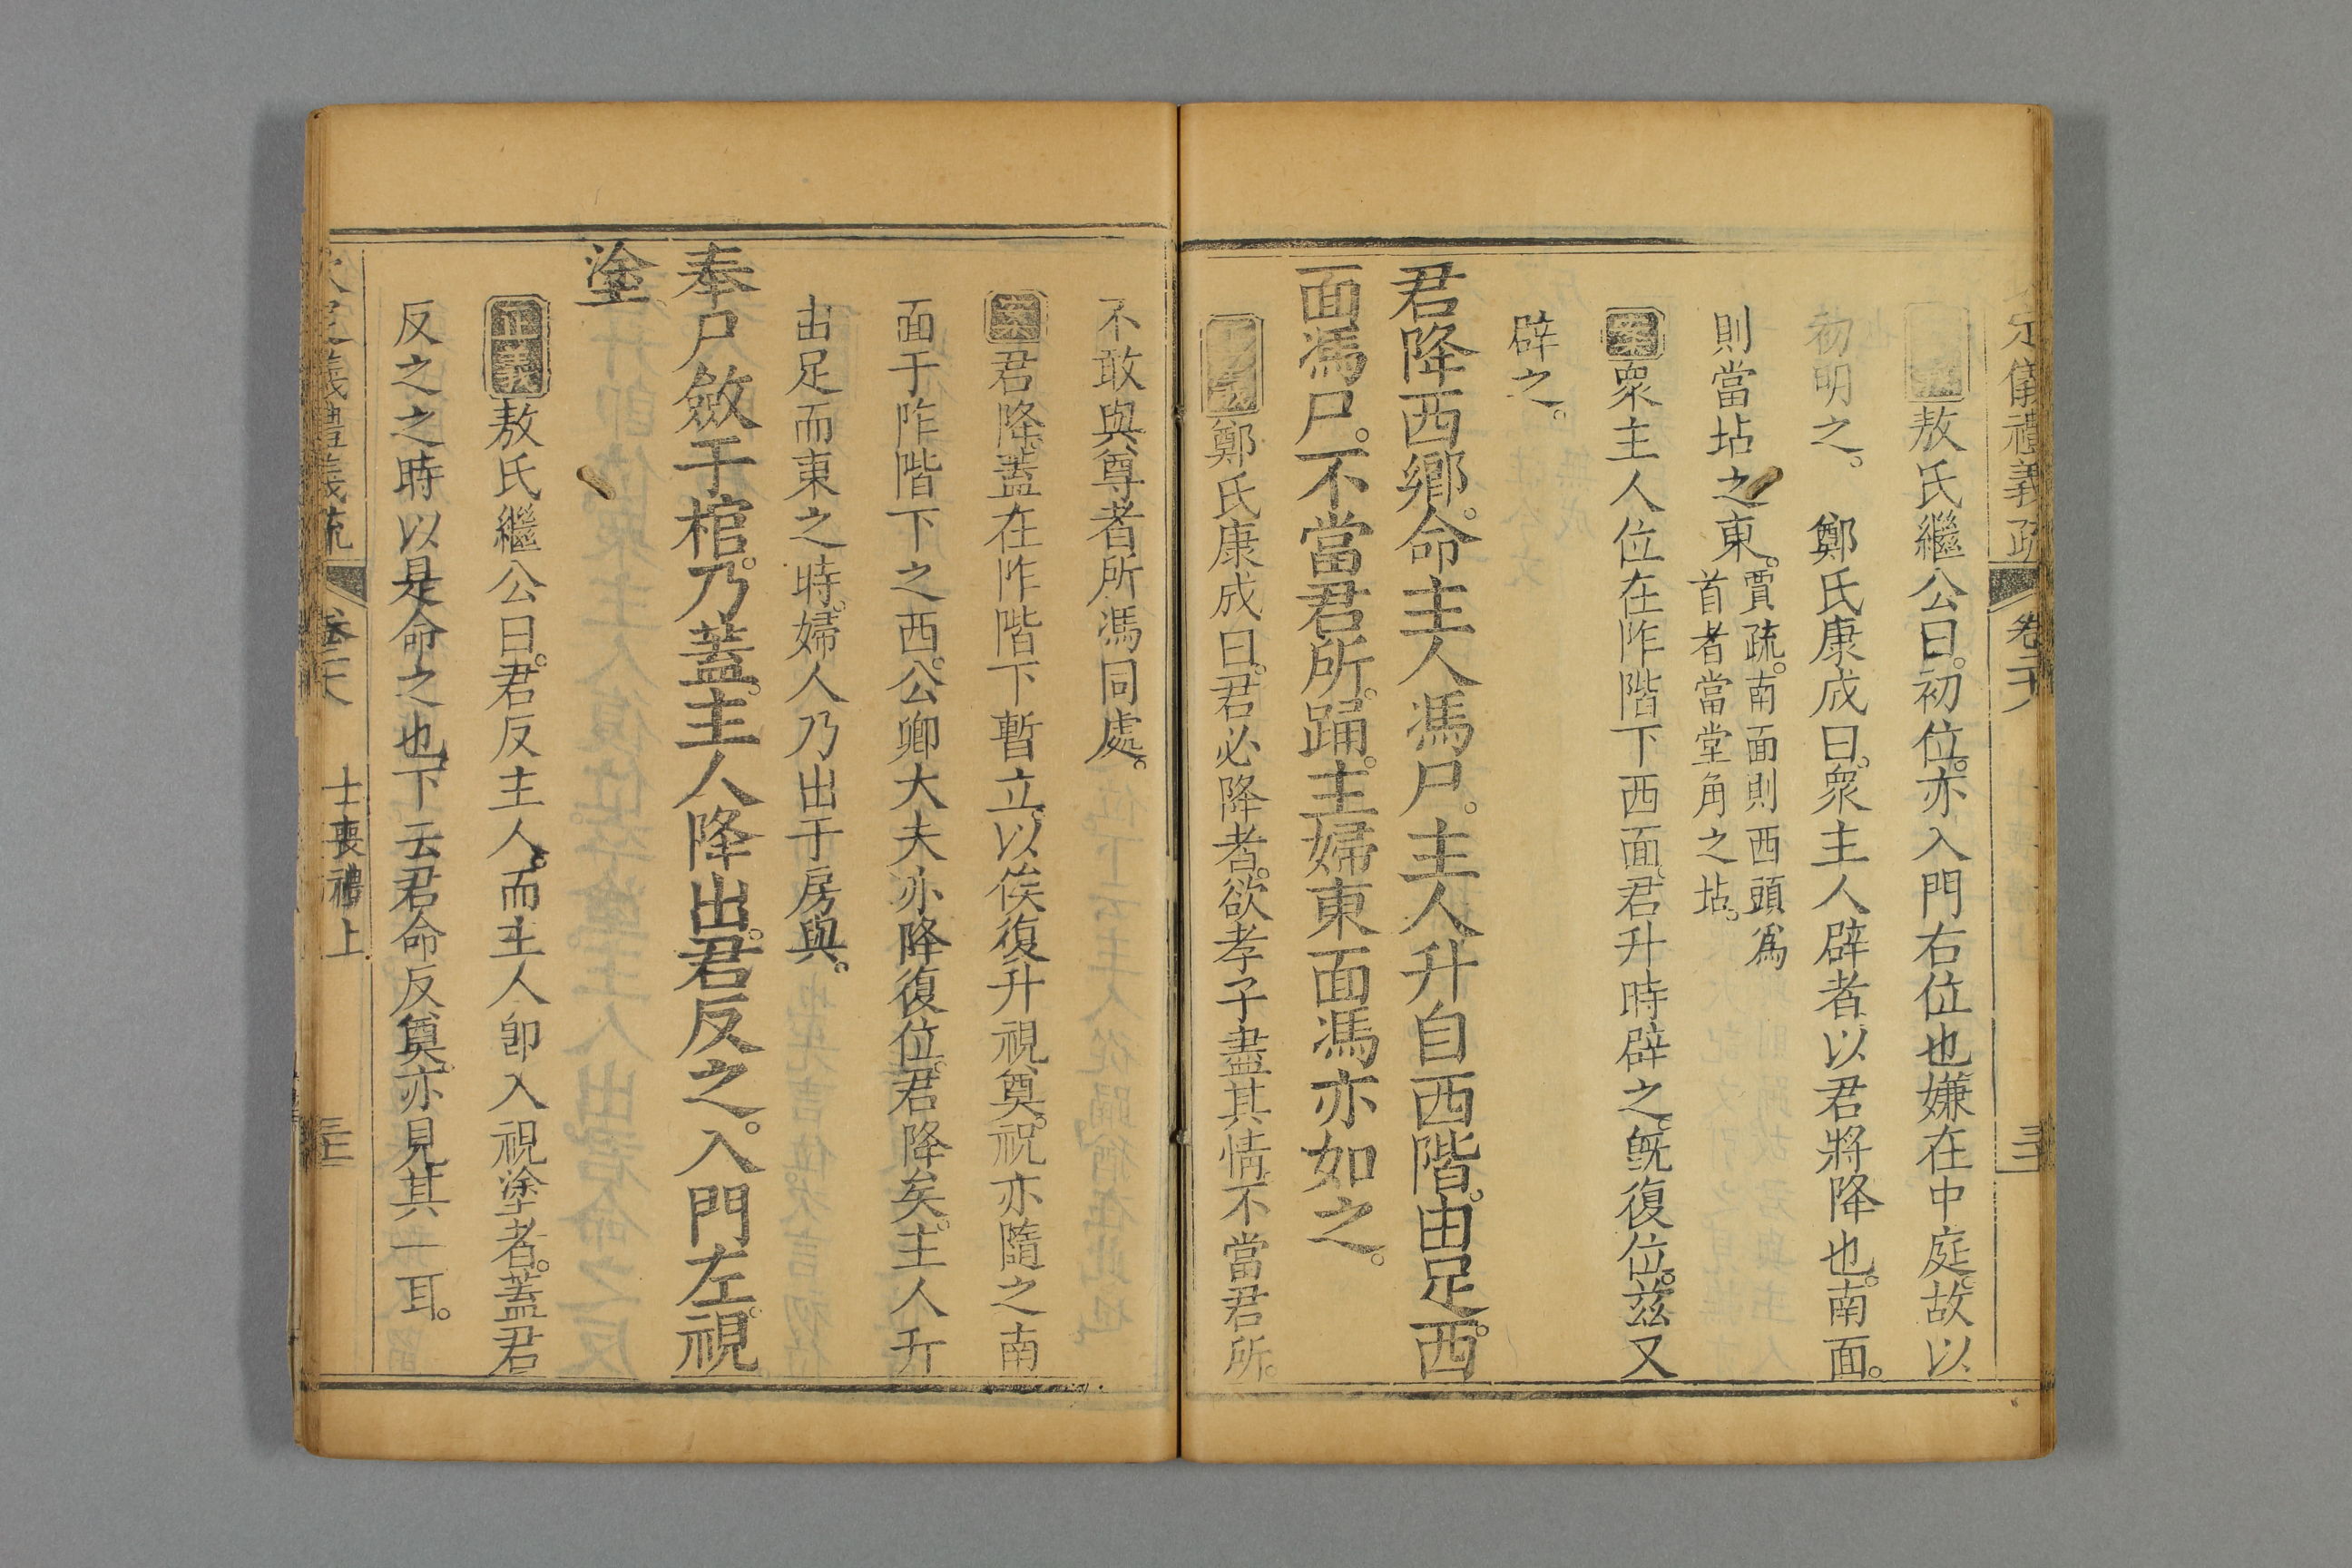 定儀禮義疏 卷二十八
敖氏繼公曰初位亦入門右位也嫌在中庭故以
初明之。 鄭氏康成曰衆主人辟者以君將降也南面。
則當坫之東。賈疏南面則西頭爲
首者當堂角之坫。
案衆主人位在阼階下西面君升時辟之旣復位茲又
辟之。
君降西鄉命主人馮尸。主人升自西階由足西
面馮尸。不當君所。踊。主婦東面馮亦如之。
正義鄭氏康成曰君必降者。欲孝子盡其情不當君所。
不敢與尊者所馮同處。
案君降蓋在阼階下暫立以俟復升視奠。祝亦隨之南
面于阼階下之西。公卿大夫亦降復位君降矣主人升
由足而東之時。婦人乃出于房與。
奉尸斂于棺。乃蓋主人降出。君反之。入門左。視
塗
正義敖氏繼公曰。君反主人。而主人卽入視塗者。蓋君
反之之時以是命之也下云君命反奠亦見其一耳。
儀禮義疏 卷二十八 士喪禮上